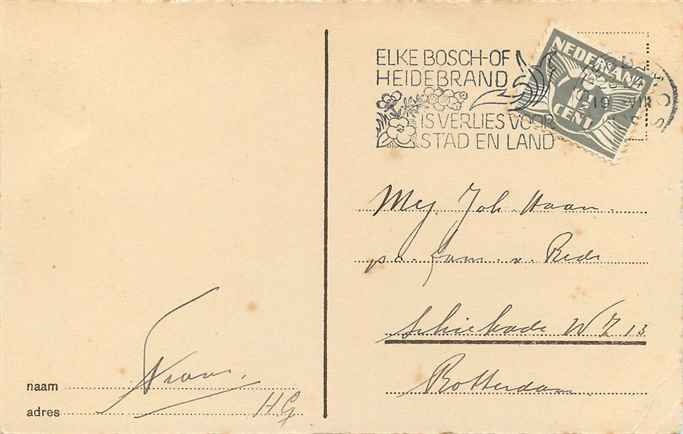 ELKE BOSCH-OF
HEIDEBRAND
IS VERLIES VOOR
STAD EN LAND
NEDERLAND
1½
CENT
Mej. Joh. Haan
p/a. Fam. v. Rede
Schiekade WZ 13
Rotterdam.
naam
adres HG